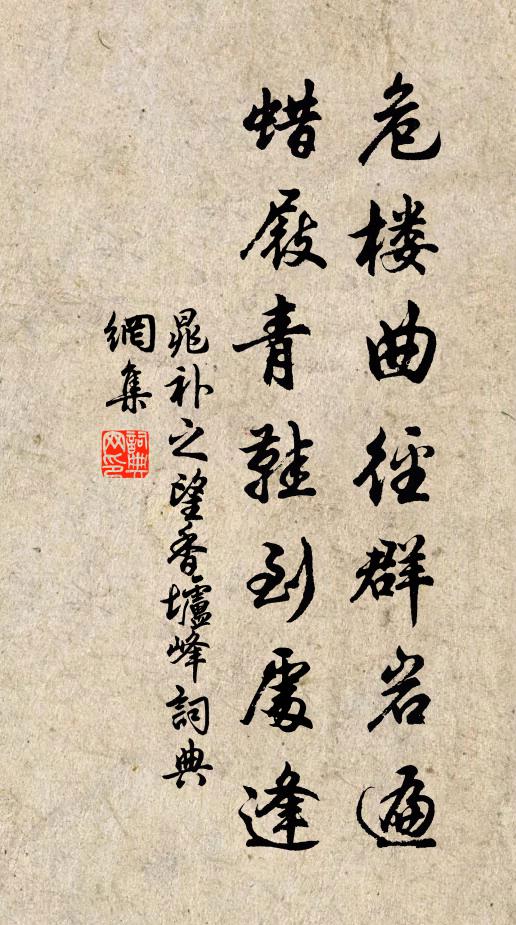 危楼曲径群岩遍
蜡屐青鞋到处逢
晁补之望香壚峰詞典
網集
詞典
网印